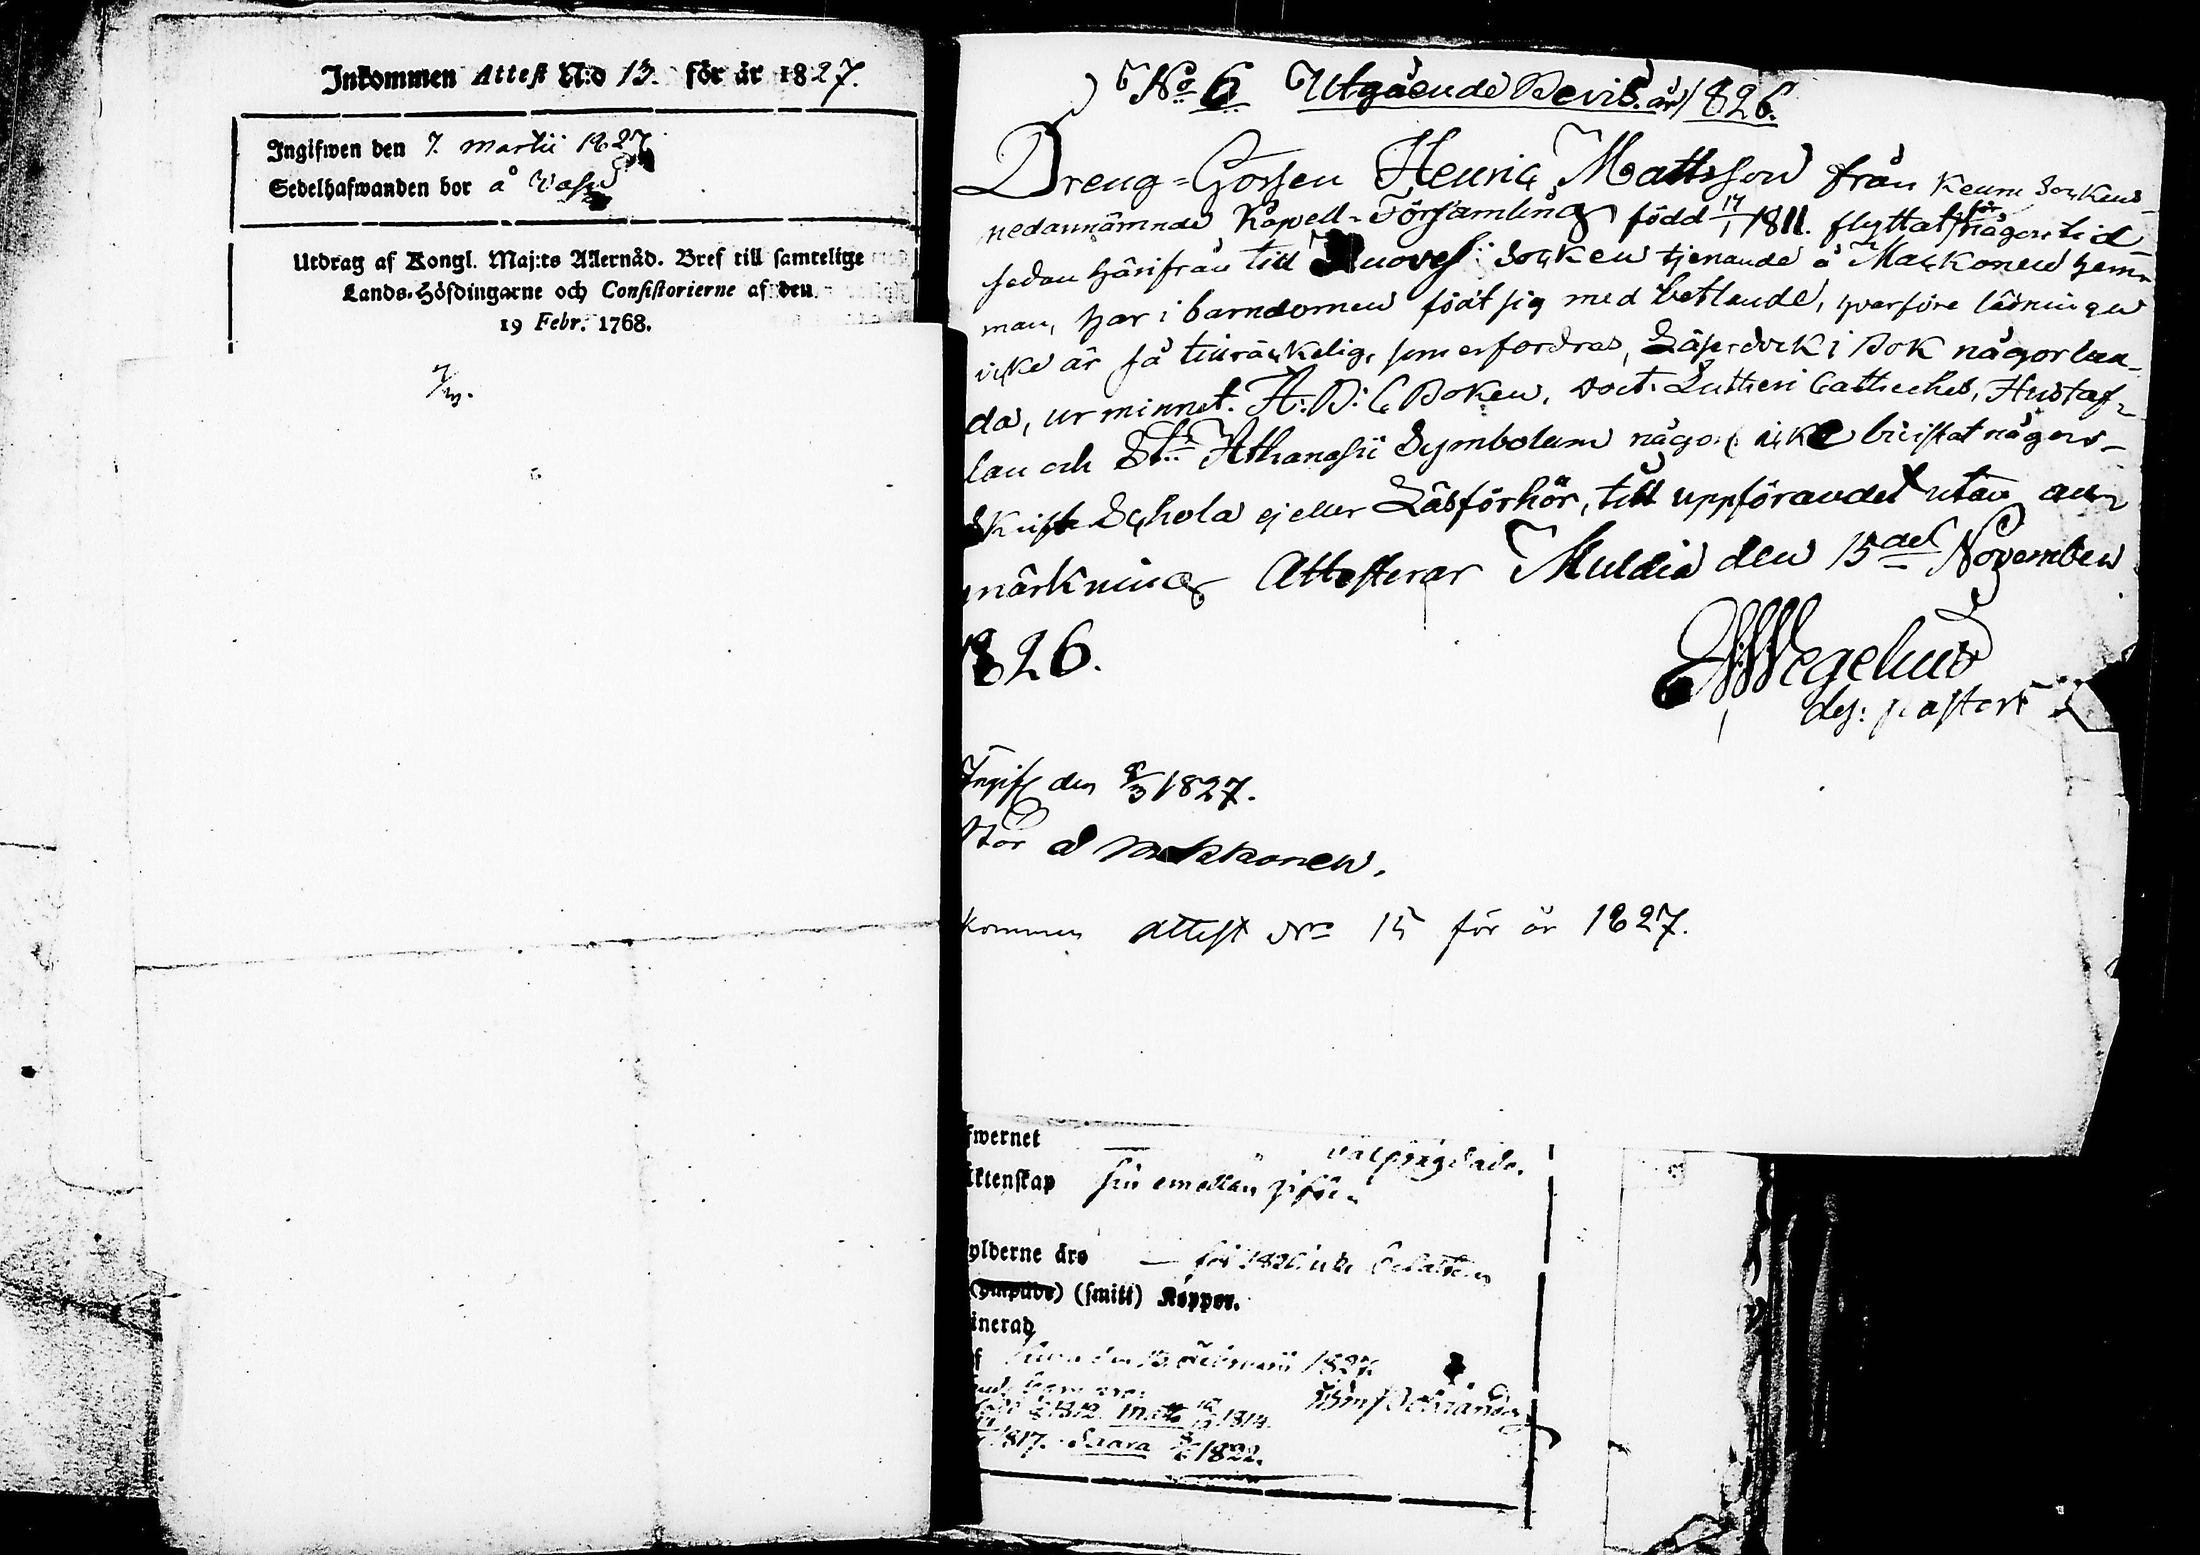 Inkommen Attest N:o 13. för år 1827.
Ingifwen den 7. Martii 1827
Sedelhafwanden bor å
Utdrag af Kongl. Maj:ts Allernåd. Bref till samtelige
Lands-Höfdingarne och Consistorierne af den
19 Febr. 1768.
No 6 Utgående Bevis år 1826.
Dreng-Gossen Henric Mattsson från Keuru Sockens
nedannämnde Kapell-Församling född 14/1 1811. flyttat för någon tid
sedan härifrån till Ruovesi Socken tjenande å Mackonen hem-
man, har i barndomen födt sig med betlande, hvarföre läsningen
icke är så tillräckelig, som erfordras, Läser dock i Bok någorlun-
da, ur minnet A:B:C Boken, Doct: Lutheri Catheches, Hustaf-
lan och S:t Athanasii Symbolum något icke bivistat någon
Skrift Schola ej eller Läsförhör, till uppförandet utan an-
märkning Attesterar Multia den 15de November
1826.
Wegelius
past
Ingif den 8/3 1827.
Bor å Makkonen.
kommen attest No 15 för år 1827.
fwernet — välfrägdade.
ktenskap sin emellan gifte
ylderne äro — för 1826 icke
(smitt) Koppor.
inerad
den 13 Februarii 1827.
1812. Matts 1814.
1817. Saara 1822.